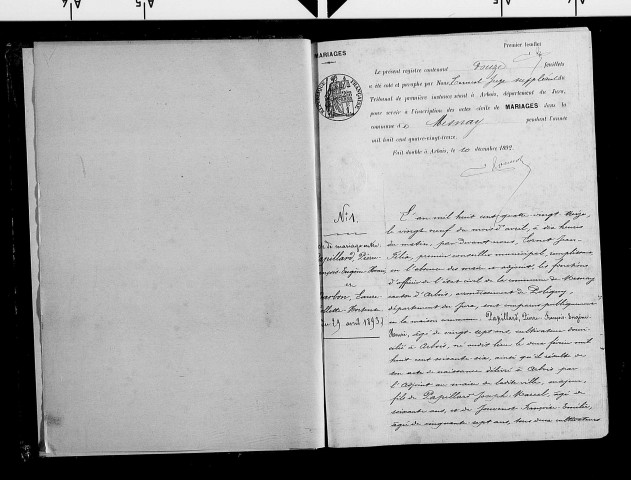 Premier feuillet
MARIAGES
Le présent registre contenant douze feuillets
a été coté et paraphé par Nous, Cornet juge suppléant du
Tribunal de première instance séant à Arbois, département du Jura,
pour servir à l'inscription des actes civils de MARIAGES dans la
commune de Mesnay pendant l'année
mil huit cent quatre-vingt-treize.
Fait double à Arbois, le 20 décembre 1892.
N° 1.
te de mariage entre
Papillard, Pierre
François Eugène Henri
et
arbon, Laure
llette Hortense
du 29 avril 1893
L'an mil huit cent quatre vingt treize,
le vingt neuf du mois d'avril, à dix heures
du matin, par devant nous, Cornet Jean
Félix, premier conseiller municipal, remplissant
en l'absence des maire et adjoint, les fonctions
d'officier de l'état civil de la commune de Mesnay
canton d'Arbois, arrondissement de Poligny,
département du Jura, sont comparus publiquement
en la maison commune: Papillard, Pierre François Eugène
Henri, âgé de vingt sept ans, cultivateur domi-
cilié à Arbois, né audit lieu le deux février mil
huit cent soixante six, ainsi qu'il résulte de
son acte de naissance délivré à Arbois par
l'adjoint au maire de ladite ville, majeur,
fils de Papillard Joseph Marcel, âgé de
soixante ans, et de Jouvenot Françoise Emilie,
âgée de cinquante sept ans, tous deux cultivateurs